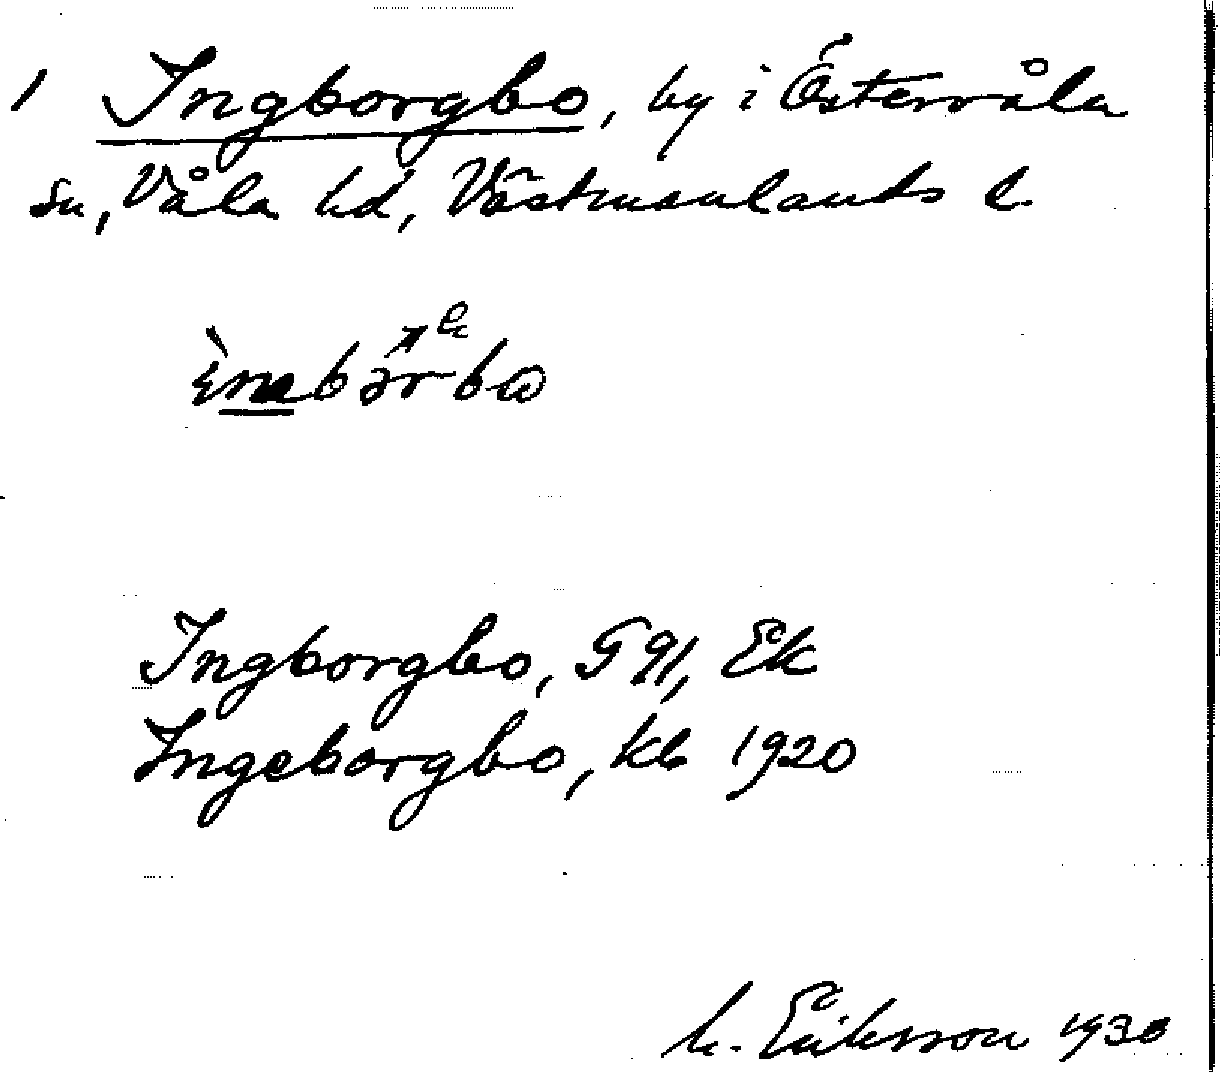 1 Ingborgbo, by i Östervåla
sn, Våla hd, Västmanlands l.
Ingborgbo, G 91, Ek
Ingeborgbo, kb 1920
M. Eriksson 1930